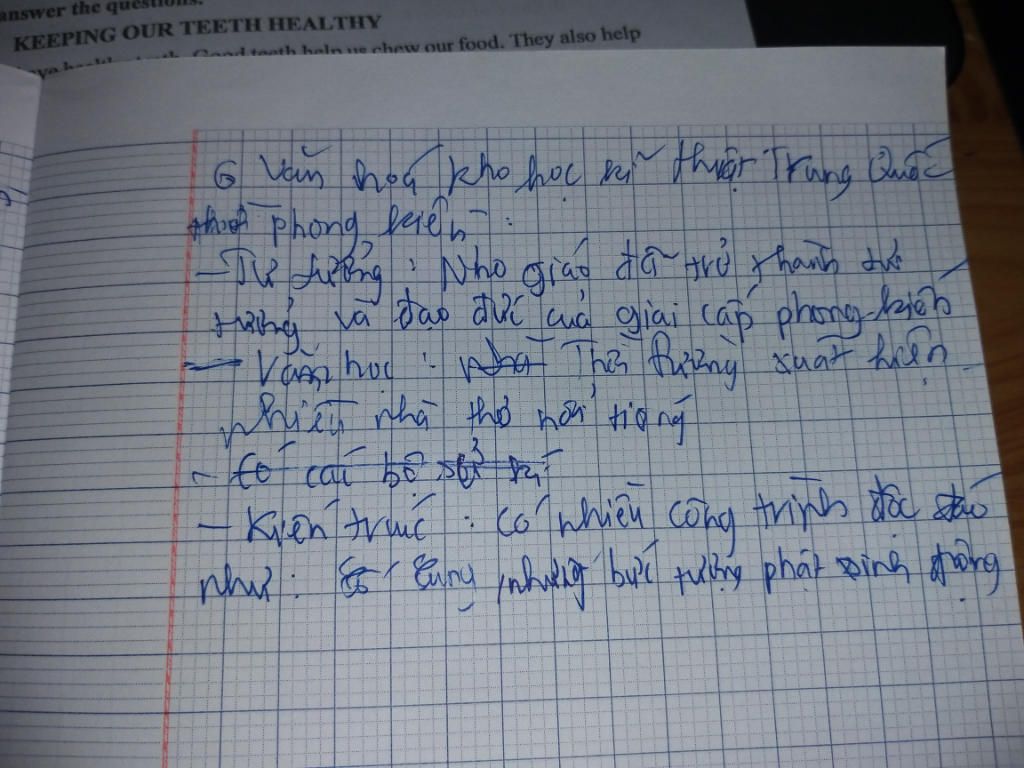 answer the questions.
KEEPING OUR TEETH HEALTHY
teeth. Good teeth help us chew our food. They also help
6 Văn hoá kho học kĩ thuật Trung Quốc
thời phong kiến :
- Tư tưởng : Nho giáo đã trở thành tư
tưởng và đạo đức của giai cấp phong kiến
- Văn học : Thời Đường xuất hiện
nhiều nhà thơ nổi tiếng
- Có các bộ sử kí
- Kiến trúc : có nhiều công trình độc đáo
như : cung những bức tượng phật sinh động